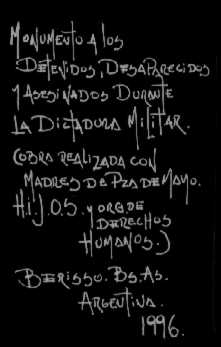 MONUMENTO A los
DETENIDOS, DESAPARECIDOS
Y ASESINADOS DURANTE
LA DICTADURA MILITAR.
(OBRA REALIZADA CON
MADRES DE PZA DE MAYO.
H.i.J.O.S. y ORG DE
DERECHOS
HUMANOS.)
BERISSO. Bs. As.
ARGENTINA.
1996.